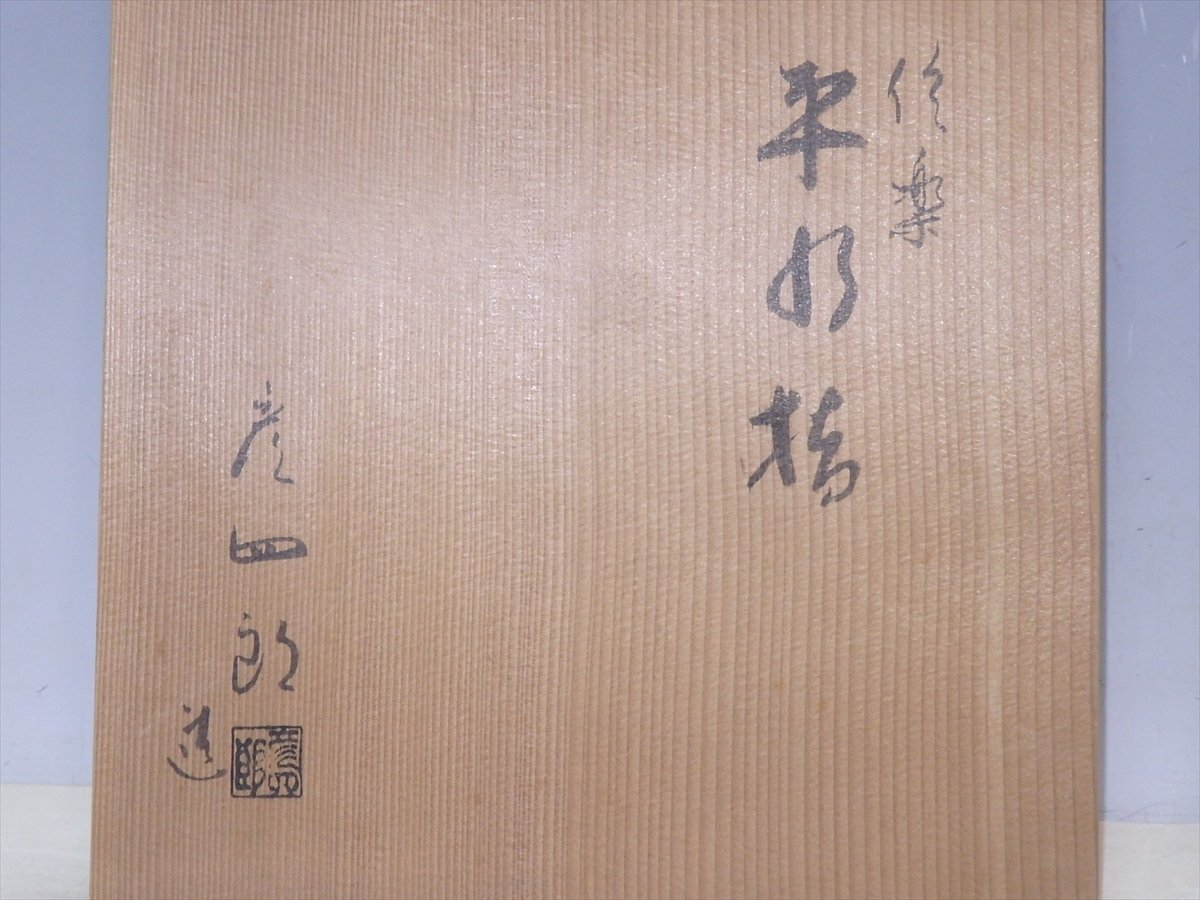 信楽
平水指
彦四郎
造